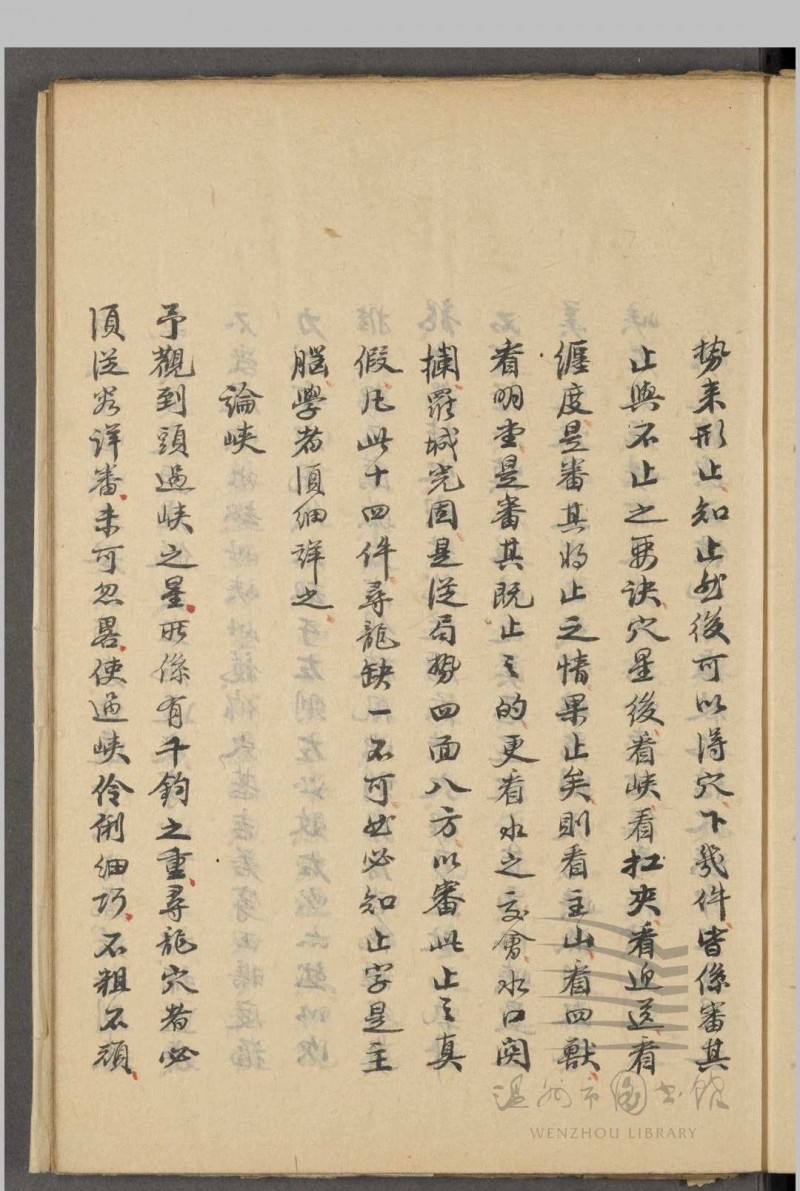 势来形止知止然後可以得穴下幾件皆係審其
止與不止之要诀穴星後看峡看扛夹看迎送看
纏度是審其将止之情果止矣則看主山看四獸
看明堂是審其既止之的更看水之交會水口関
攔羅城完固是從局势四面八方以審此止之真
假凡此十四件尋龍缺一不可然必知止字是主
腦學者須细詳之
論峡
予觀到頭過峡之星所係有千鈞之重尋龍穴者必
須從容详審未可忽畧使過峡伶俐细巧不粗不頑
温州市圖書館
WENZHOU LIBRARY